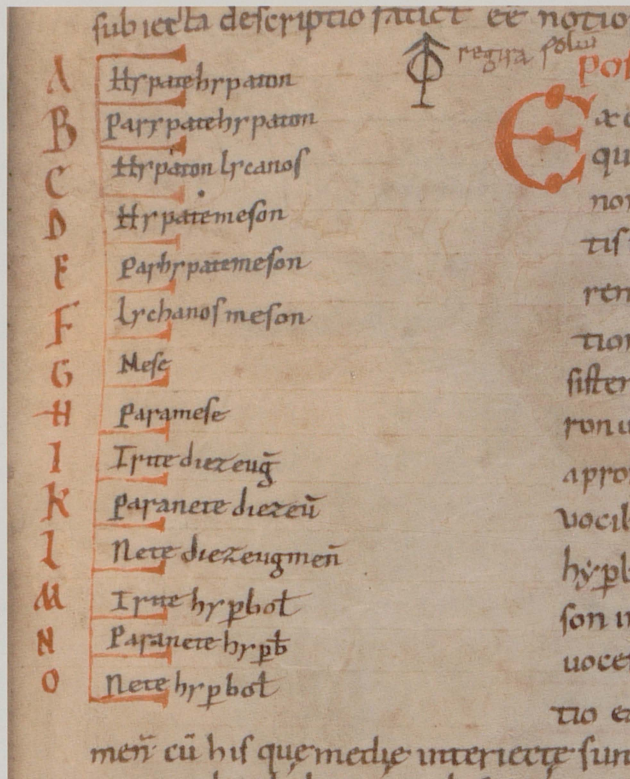 subiecta descriptio faciet eē notio
regula
A Hypatehypaton
B Parypatehypaton
C Hypaton lycanos
D Hypatemeson
E Parhypatemeson
F lychanosmeson
G Mese
H Paramese
I Trite diezeug̅
K Paranete diezeu̅
L Nete diezeugmen̅
M Trite hyꝑbol̅
N Paranete hyꝑb̅
O Nete hyꝑbol̅
qu
non
tis
ren
tion
sister
ron u
apro
vocib
hyꝑb
son in
voce
tio
men̅ cu̅ his quę medię interiectę sun